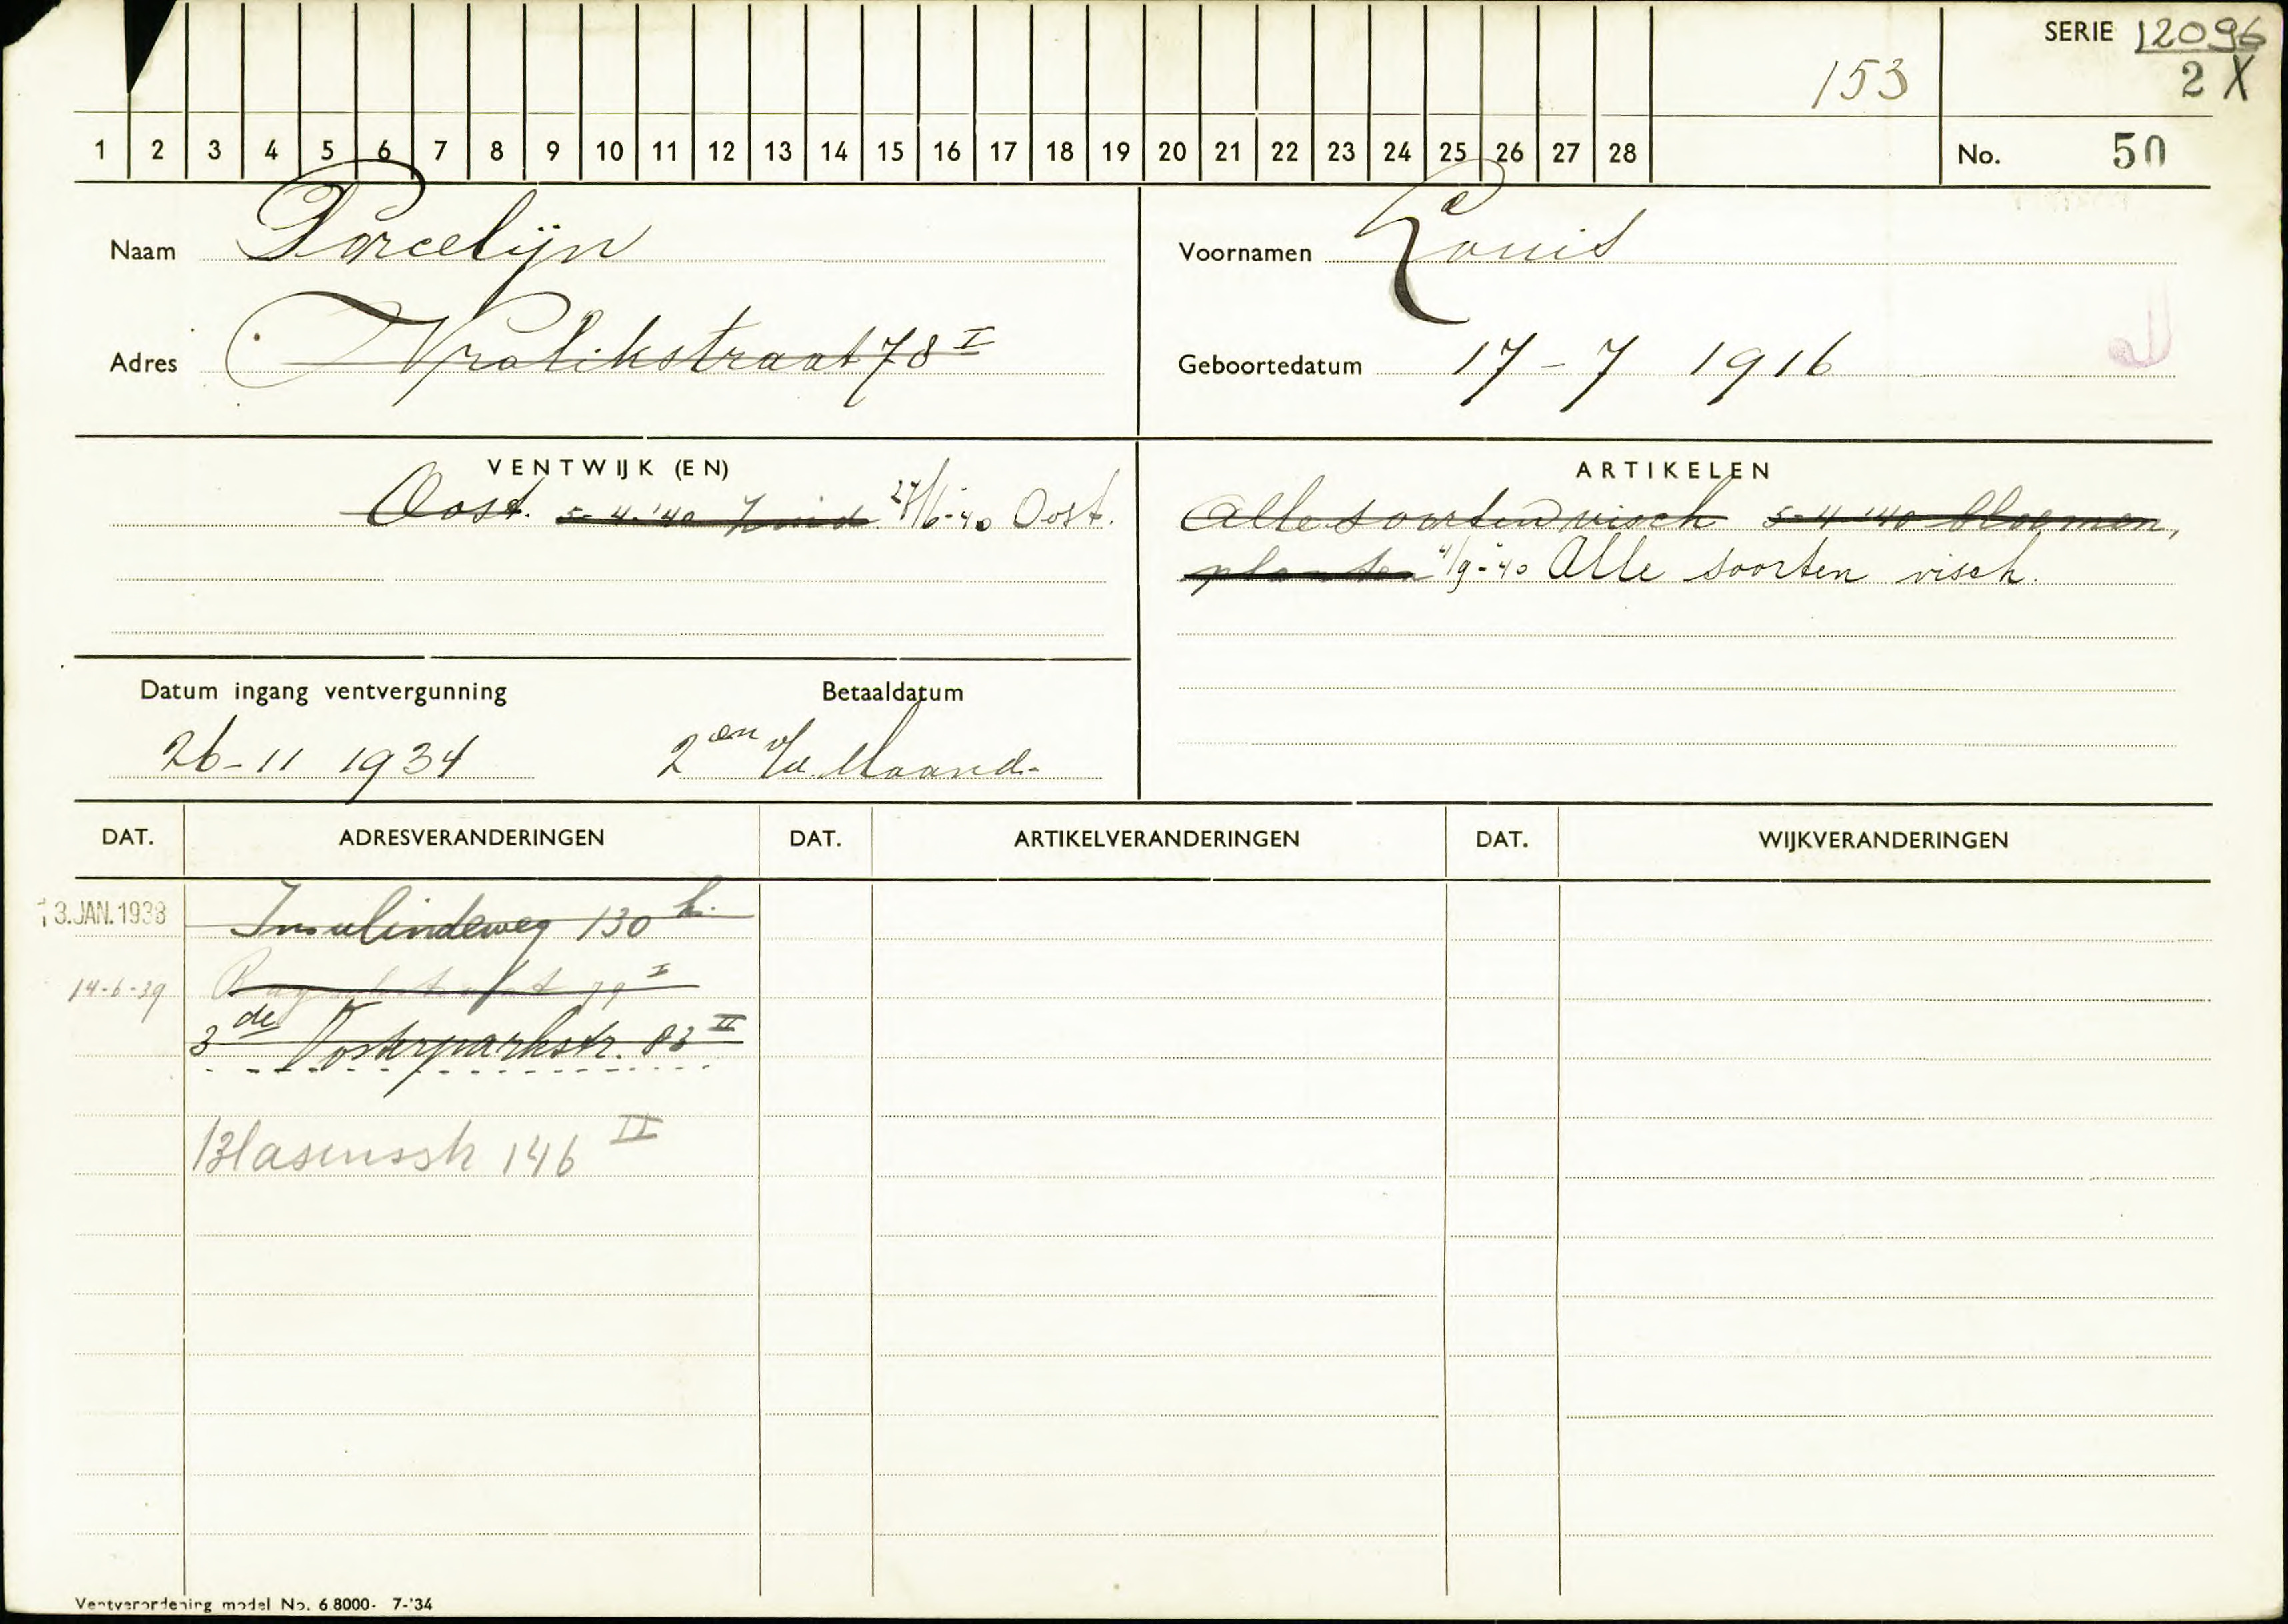 SERIE 12096
153 2 X
1 2 3 4 5 6 7 8 9 10 11 12 13 14 15 16 17 18 19 20 21 22 23 24 25 26 27 28 No. 50
Naam Porcelijn
Voornamen Louis
Adres Wralikstraat 78 I
Geboortedatum 17-7 1916
VENTWIJK (EN)
Oost. 5-4-'40 Zuid 27/6-40 Oost.
ARTIKELEN
Alle soorten visch 5-4-'40 bloemen,
planten 4/9-'40 Alle soorten visch.
Datum ingang ventvergunning Betaaldatum
26-11 1934 2en v/d. Maand.
DAT. ADRESVERANDERINGEN DAT. ARTIKELVERANDERINGEN DAT. WIJKVERANDERINGEN
13.JAN.1938 Insulindeweg 130 h.
14-6-39 79 I
3de Oosterparkstr. 83 II
146 II
Ventverordening model No. 6 8000- 7-'34